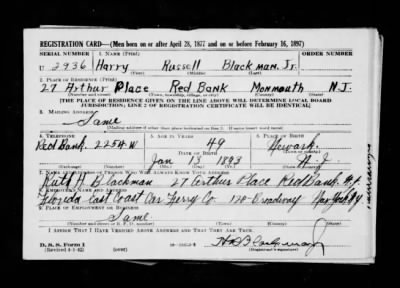 REGISTRATION CARD—(Men born on or after April 28, 1877 and on or before February 16, 1897)
SERIAL NUMBER 1. NAME (Print) ORDER NUMBER
U 2936 Harry Russell Blackman, Jr.
(First) (Middle) (Last)
2. PLACE OF RESIDENCE (Print)
27 Arthur Place Red Bank Monmouth N.J.
(Number and street) (Town, township, village, or city) (County) (State)
[THE PLACE OF RESIDENCE GIVEN ON THE LINE ABOVE WILL DETERMINE LOCAL BOARD
JURISDICTION; LINE 2 OF REGISTRATION CERTIFICATE WILL BE IDENTICAL]
3. MAILING ADDRESS
Same
[Mailing address if other than place indicated on line 2. If same insert word same]
4. TELEPHONE 5. AGE IN YEARS 6. PLACE OF BIRTH
Red Bank 2254-W 49 Newark
DATE OF BIRTH (Town or county)
Jan 13 1893 N.J.
(Exchange) (Number) (Mo.) (Day) (Yr.) (State or country)
7. NAME AND ADDRESS OF PERSON WHO WILL ALWAYS KNOW YOUR ADDRESS
Ruth H. Blackman 27 Arthur Place Red Bank N.J.
8. EMPLOYER'S NAME AND ADDRESS
Florida East Coast Car Ferry Co. Broadway New York
9. PLACE OF EMPLOYMENT OR BUSINESS
Same
(Number and street or R. F. D. number) (Town) (County) (State)
I AFFIRM THAT I HAVE VERIFIED ABOVE ANSWERS AND THAT THEY ARE TRUE.
D. S. S. Form 1
(Revised 4-1-42) (Registrant's signature)